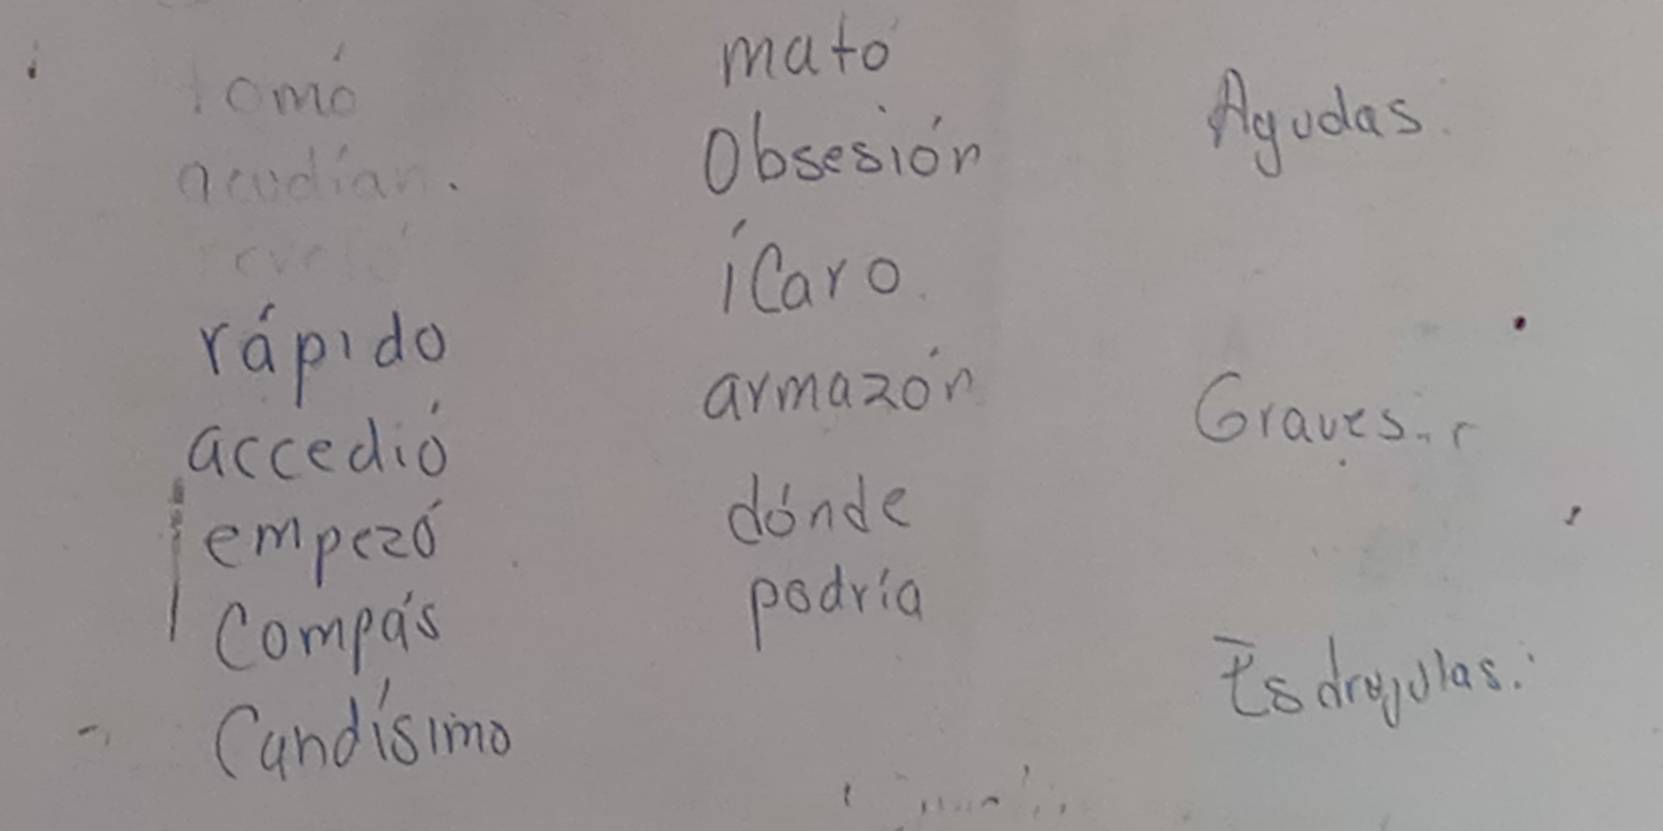 tomó
acudían.
reveló
rápido
accedió
empezó
Compás
Candísimo
mató
Obsesión
íCaro.
armazón
dónde
podría
Agudas.
Graves..
Esdrújulas.: